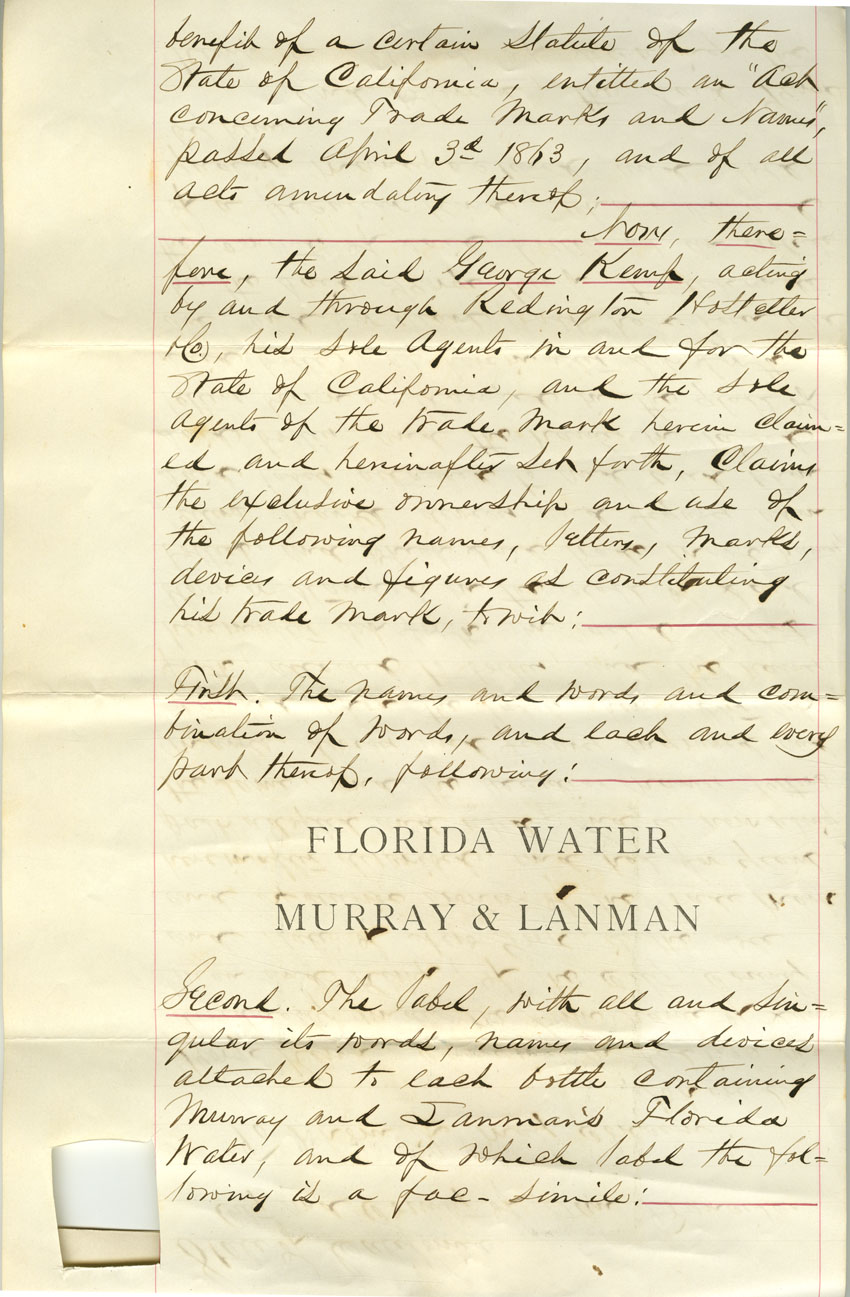 benefit of a certain Statute of the
State of California, entitled an "Act
concerning Trade Marks and Names",
passed April 3d 1863, and of all
acts amendatory thereof;
Now, there=
fore, the said George Kemp, acting
by and through Redington Hostetter
&Co., his Sole Agents in and for the
State of California, and the Sole
Agents of the trade mark herein claim=
ed and hereinafter set forth, Claims
the exclusive ownership and use of
the following names, letters, marks,
devices and figures as constituting
his trade mark, to wit:
First. The names and words and com=
bination of words, and each and every
part thereof, following:
FLORIDA WATER
MURRAY & LANMAN
Second. The label, with all and sin=
gular its words, names and devices
attached to each bottle containing
Murray and Lanman's Florida
Water, and of which label the fol=
lowing is a fac-simile: